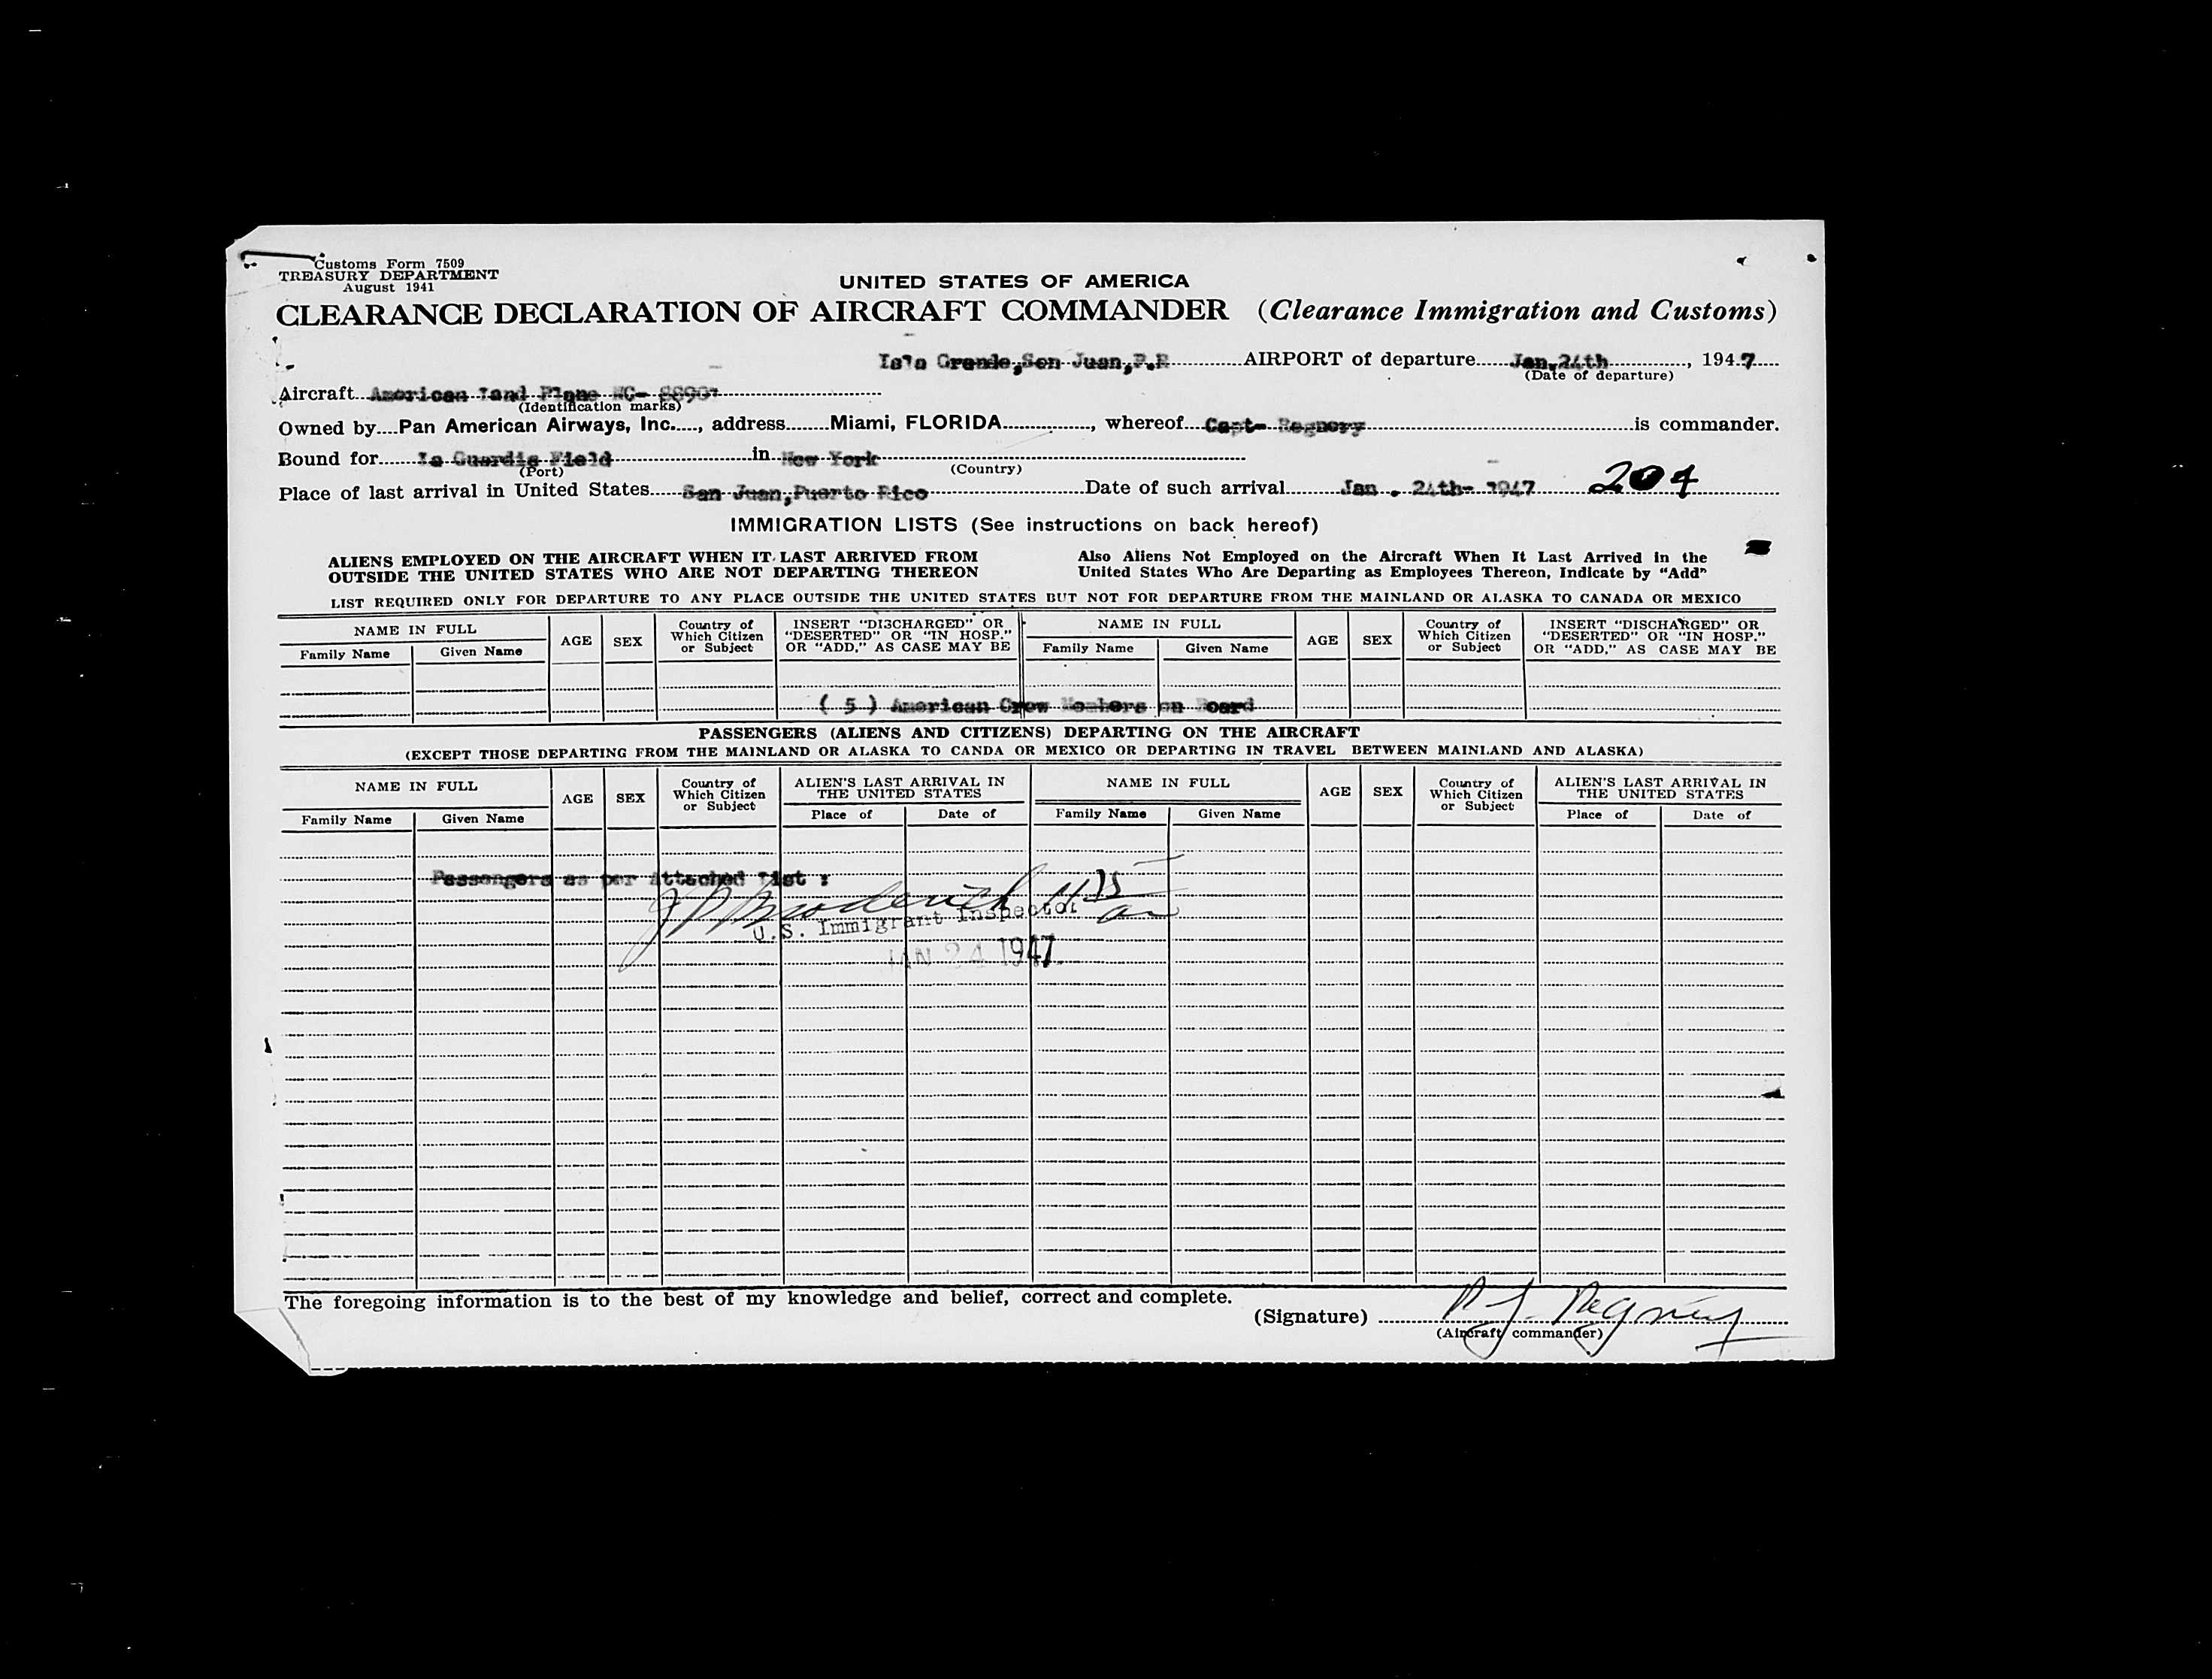 Customs Form 7509
TREASURY DEPARTMENT
August 1941
UNITED STATES OF AMERICA
CLEARANCE DECLARATION OF AIRCRAFT COMMANDER (Clearance Immigration and Customs)
Isla Grande, San Juan, P.R. AIRPORT of departure Jan. 24th, 1947
(Date of departure)
Aircraft American Land Plane NC-
(Identification marks)
Owned by Pan American Airways, Inc., address Miami, FLORIDA, whereof Capt- Regnery is commander.
Bound for La Guardia Field in New York
(Port) (Country)
Place of last arrival in United States San Juan, Puerto Rico Date of such arrival Jan. 24th- 1947 204
IMMIGRATION LISTS (See instructions on back hereof)
ALIENS EMPLOYED ON THE AIRCRAFT WHEN IT LAST ARRIVED FROM
OUTSIDE THE UNITED STATES WHO ARE NOT DEPARTING THEREON
Also Aliens Not Employed on the Aircraft When It Last Arrived in the
United States Who Are Departing as Employees Thereon, Indicate by "Add"
LIST REQUIRED ONLY FOR DEPARTURE TO ANY PLACE OUTSIDE THE UNITED STATES BUT NOT FOR DEPARTURE FROM THE MAINLAND OR ALASKA TO CANADA OR MEXICO
NAME IN FULL
Family Name Given Name
AGE
SEX
Country of
Which Citizen
or Subject
INSERT "DISCHARGED" OR
"DESERTED" OR "IN HOSP."
OR "ADD," AS CASE MAY BE
NAME IN FULL
Family Name Given Name
AGE
SEX
Country of
Which Citizen
or Subject
INSERT "DISCHARGED" OR
"DESERTED" OR "IN HOSP."
OR "ADD," AS CASE MAY BE
( 5 ) American Crew Members on Board
PASSENGERS (ALIENS AND CITIZENS) DEPARTING ON THE AIRCRAFT
(EXCEPT THOSE DEPARTING FROM THE MAINLAND OR ALASKA TO CANDA OR MEXICO OR DEPARTING IN TRAVEL BETWEEN MAINLAND AND ALASKA)
NAME IN FULL
Family Name Given Name
AGE
SEX
Country of
Which Citizen
or Subject
ALIEN'S LAST ARRIVAL IN
THE UNITED STATES
Place of Date of
NAME IN FULL
Family Name Given Name
AGE
SEX
Country of
Which Citizen
or Subject
ALIEN'S LAST ARRIVAL IN
THE UNITED STATES
Place of Date of
Passengers as per attached list :
Broderick
U.S. Immigrant Inspector
JAN 24 1947
The foregoing information is to the best of my knowledge and belief, correct and complete.
(Signature) R J. Regnery
(Aircraft commander)